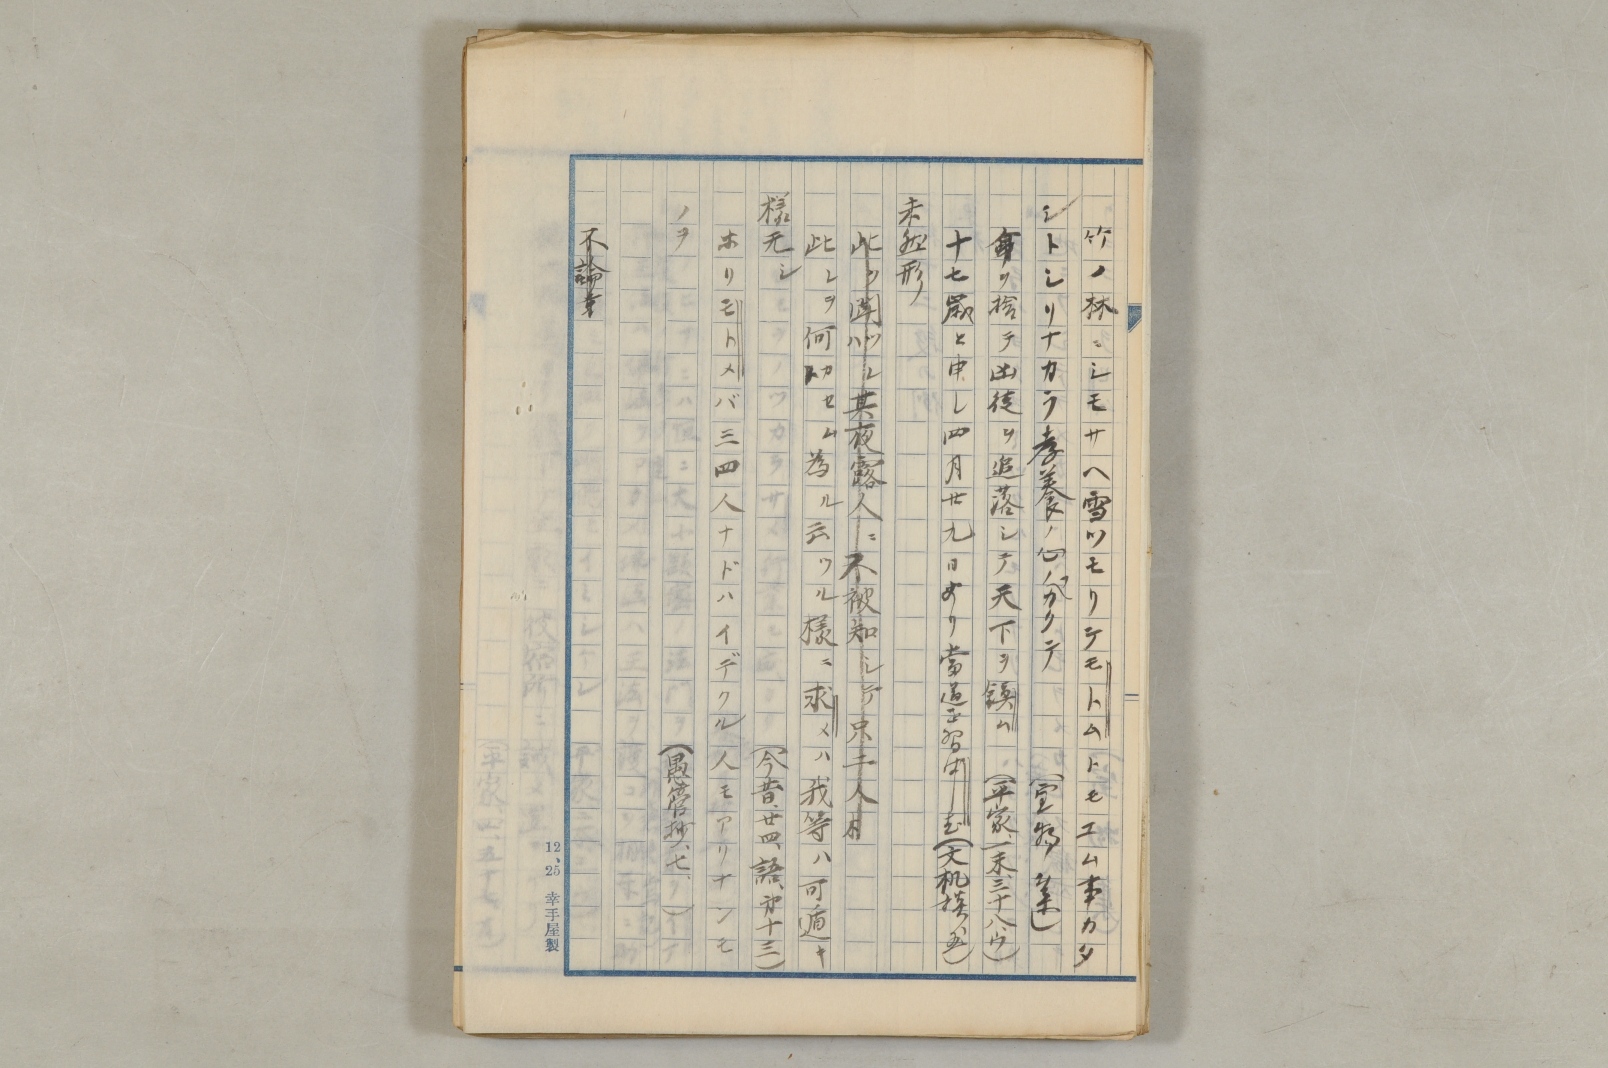 竹ノ林ニシモサヘ雪ツモリテモトムトモエム事カタ
シトシリナカラ孝養ノ心フカクテ(宝物集)
身ヲ捨テ凶徒ヲ追落シテ天下ヲ鎮ム(平家、一末、三十八、ウ)
十七歳と申し四月廿九日より当道
未然形
此ヲ聞ツル其夜露人ニ不被知シテ只二人
此レヲ何カセム為ル云ツル様ニ求メハ我等ハ可遁キ
様无シ(今昔、廿四、語、第十三)
ホリモトメバ三四人ナドハイデクル人モアリナンモ
ノヲ(愚管抄、七、)
不論
12、25 幸手屋製